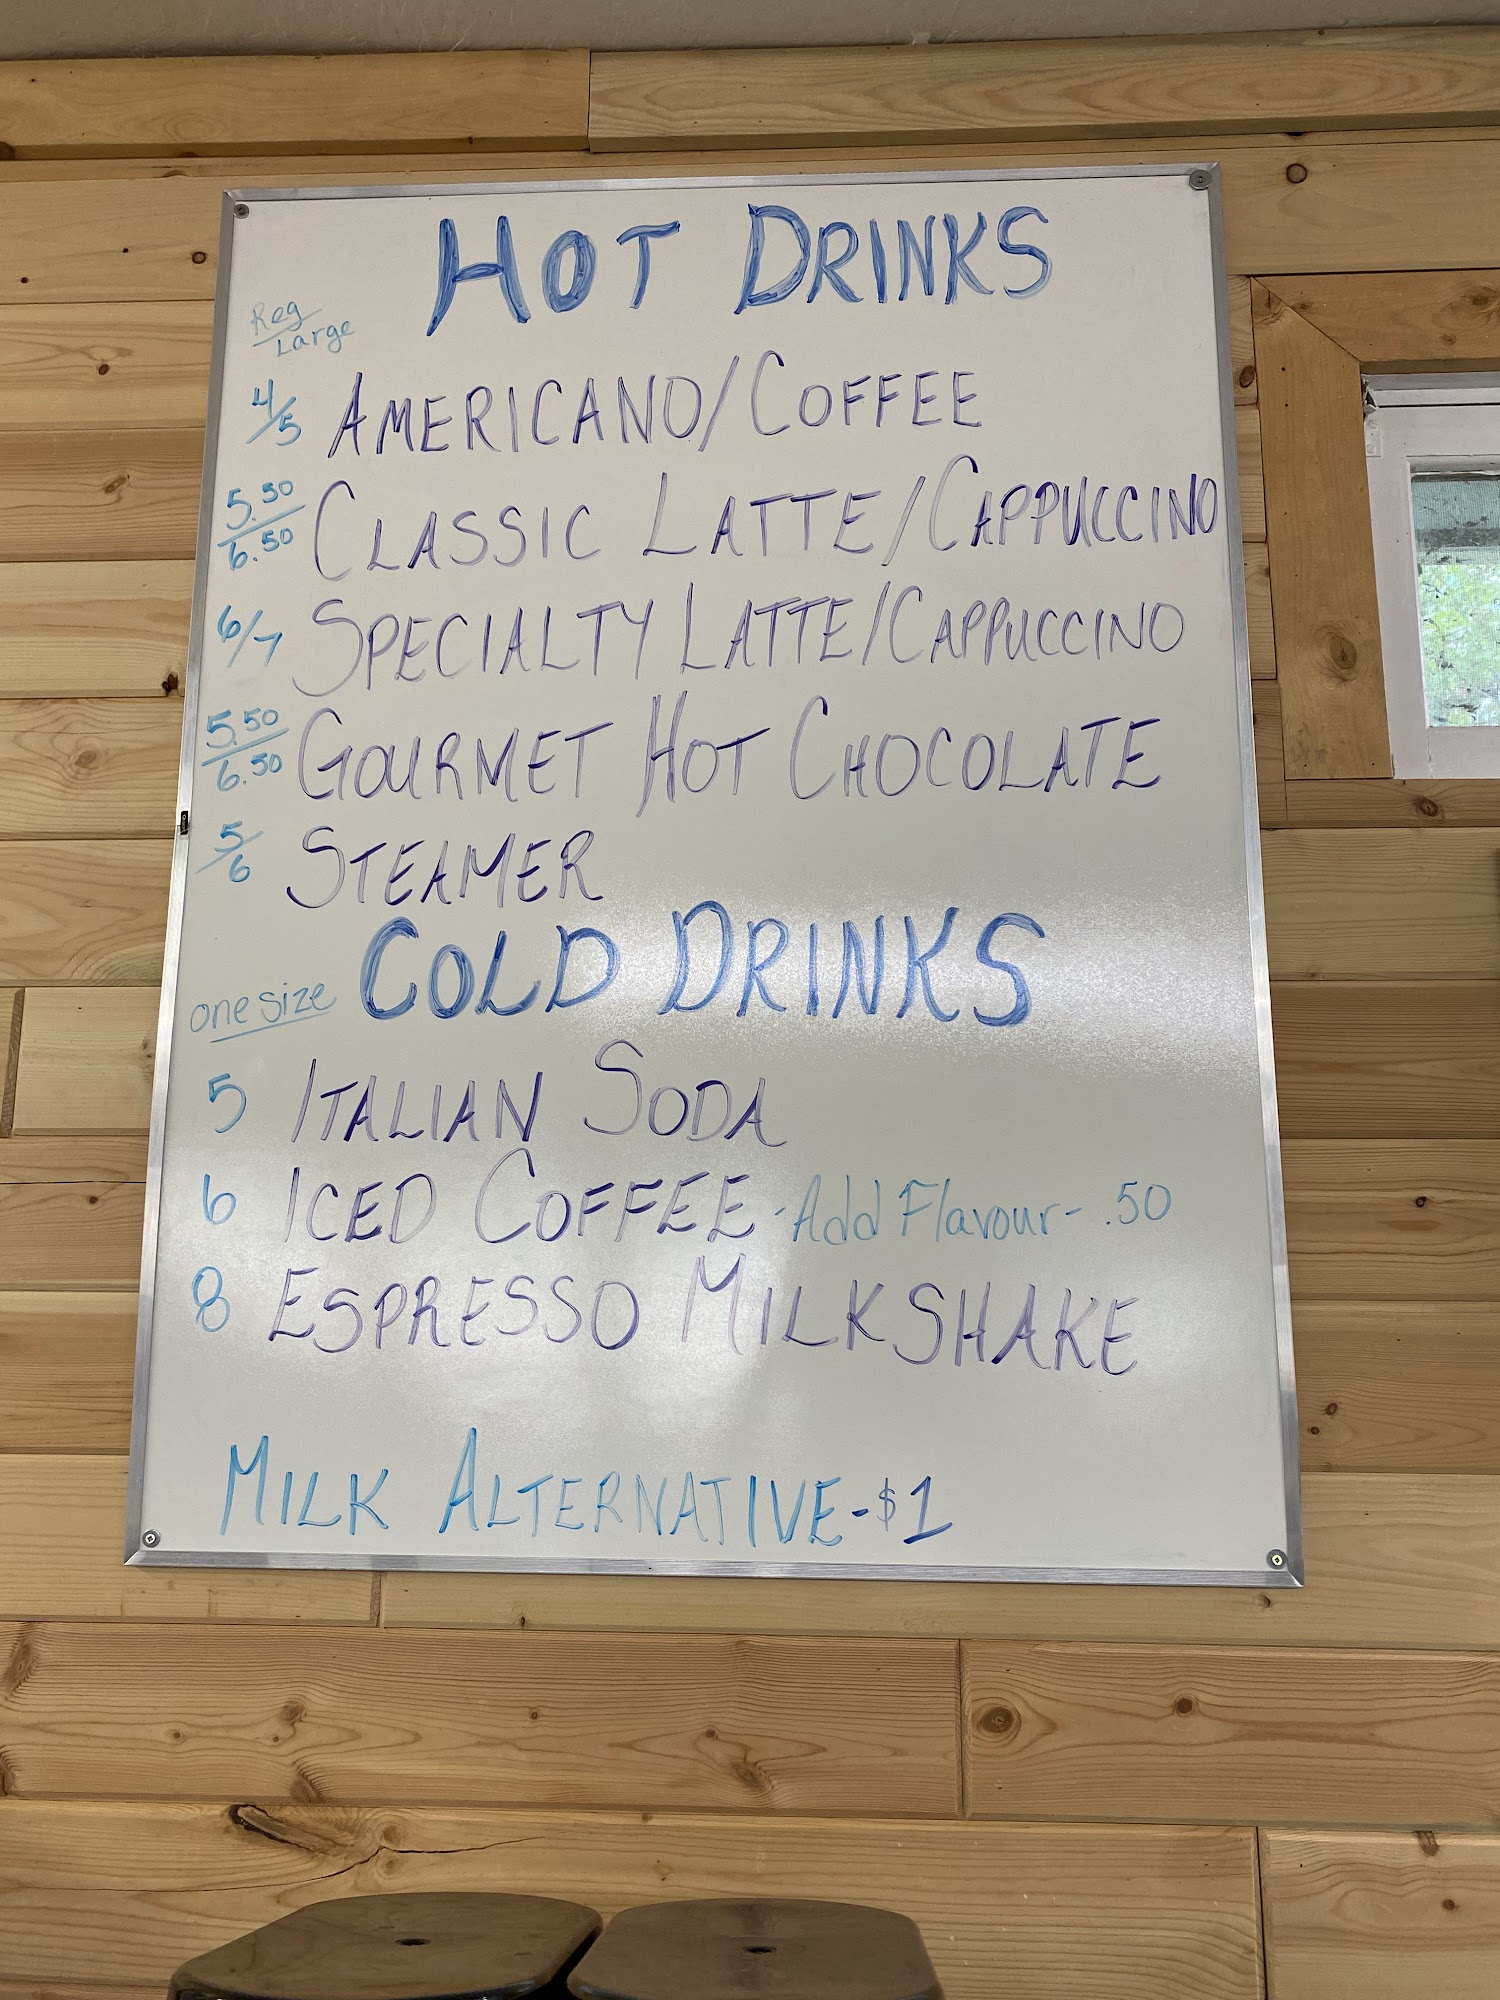 HOT DRINKS
Reg/Large
4/5 AMERICANO/COFFEE
5.50/6.50 CLASSIC LATTE/CAPPUCCINO
6/7 SPECIALTY LATTE/CAPPUCCINO
5.50/6.50 GOURMET HOT CHOCOLATE
5/6 STEAMER
one size COLD DRINKS
5 ITALIAN SODA
6 ICED COFFEE - Add Flavour - .50
8 ESPRESSO MILKSHAKE
MILK ALTERNATIVE - $1